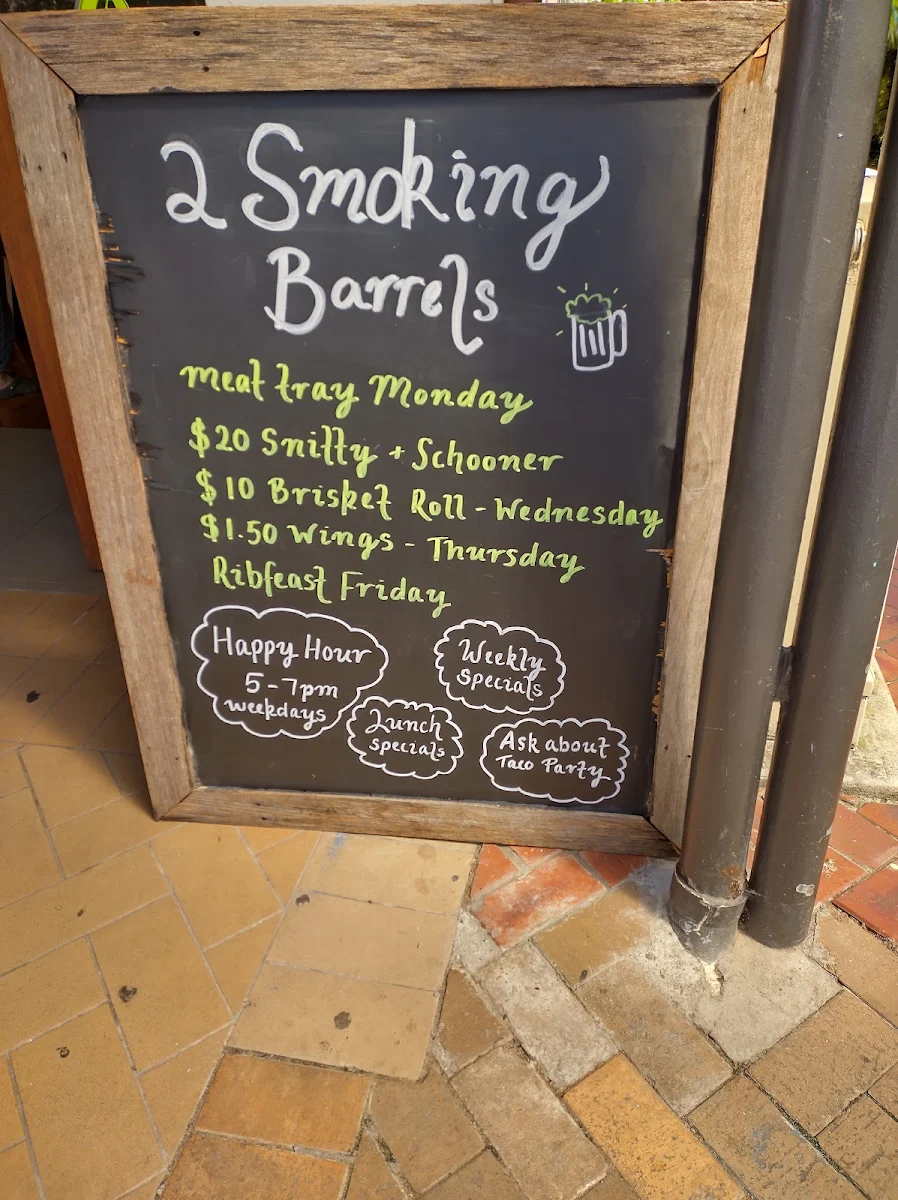 2 Smoking
Barrels
meat tray Monday
$20 Snitty + Schooner
$10 Brisket Roll - Wednesday
$1.50 Wings - Thursday
Ribfeast Friday
Happy Hour
5-7pm
weekdays
Weekly
Specials
Lunch
Specials
Ask about
Taco Party